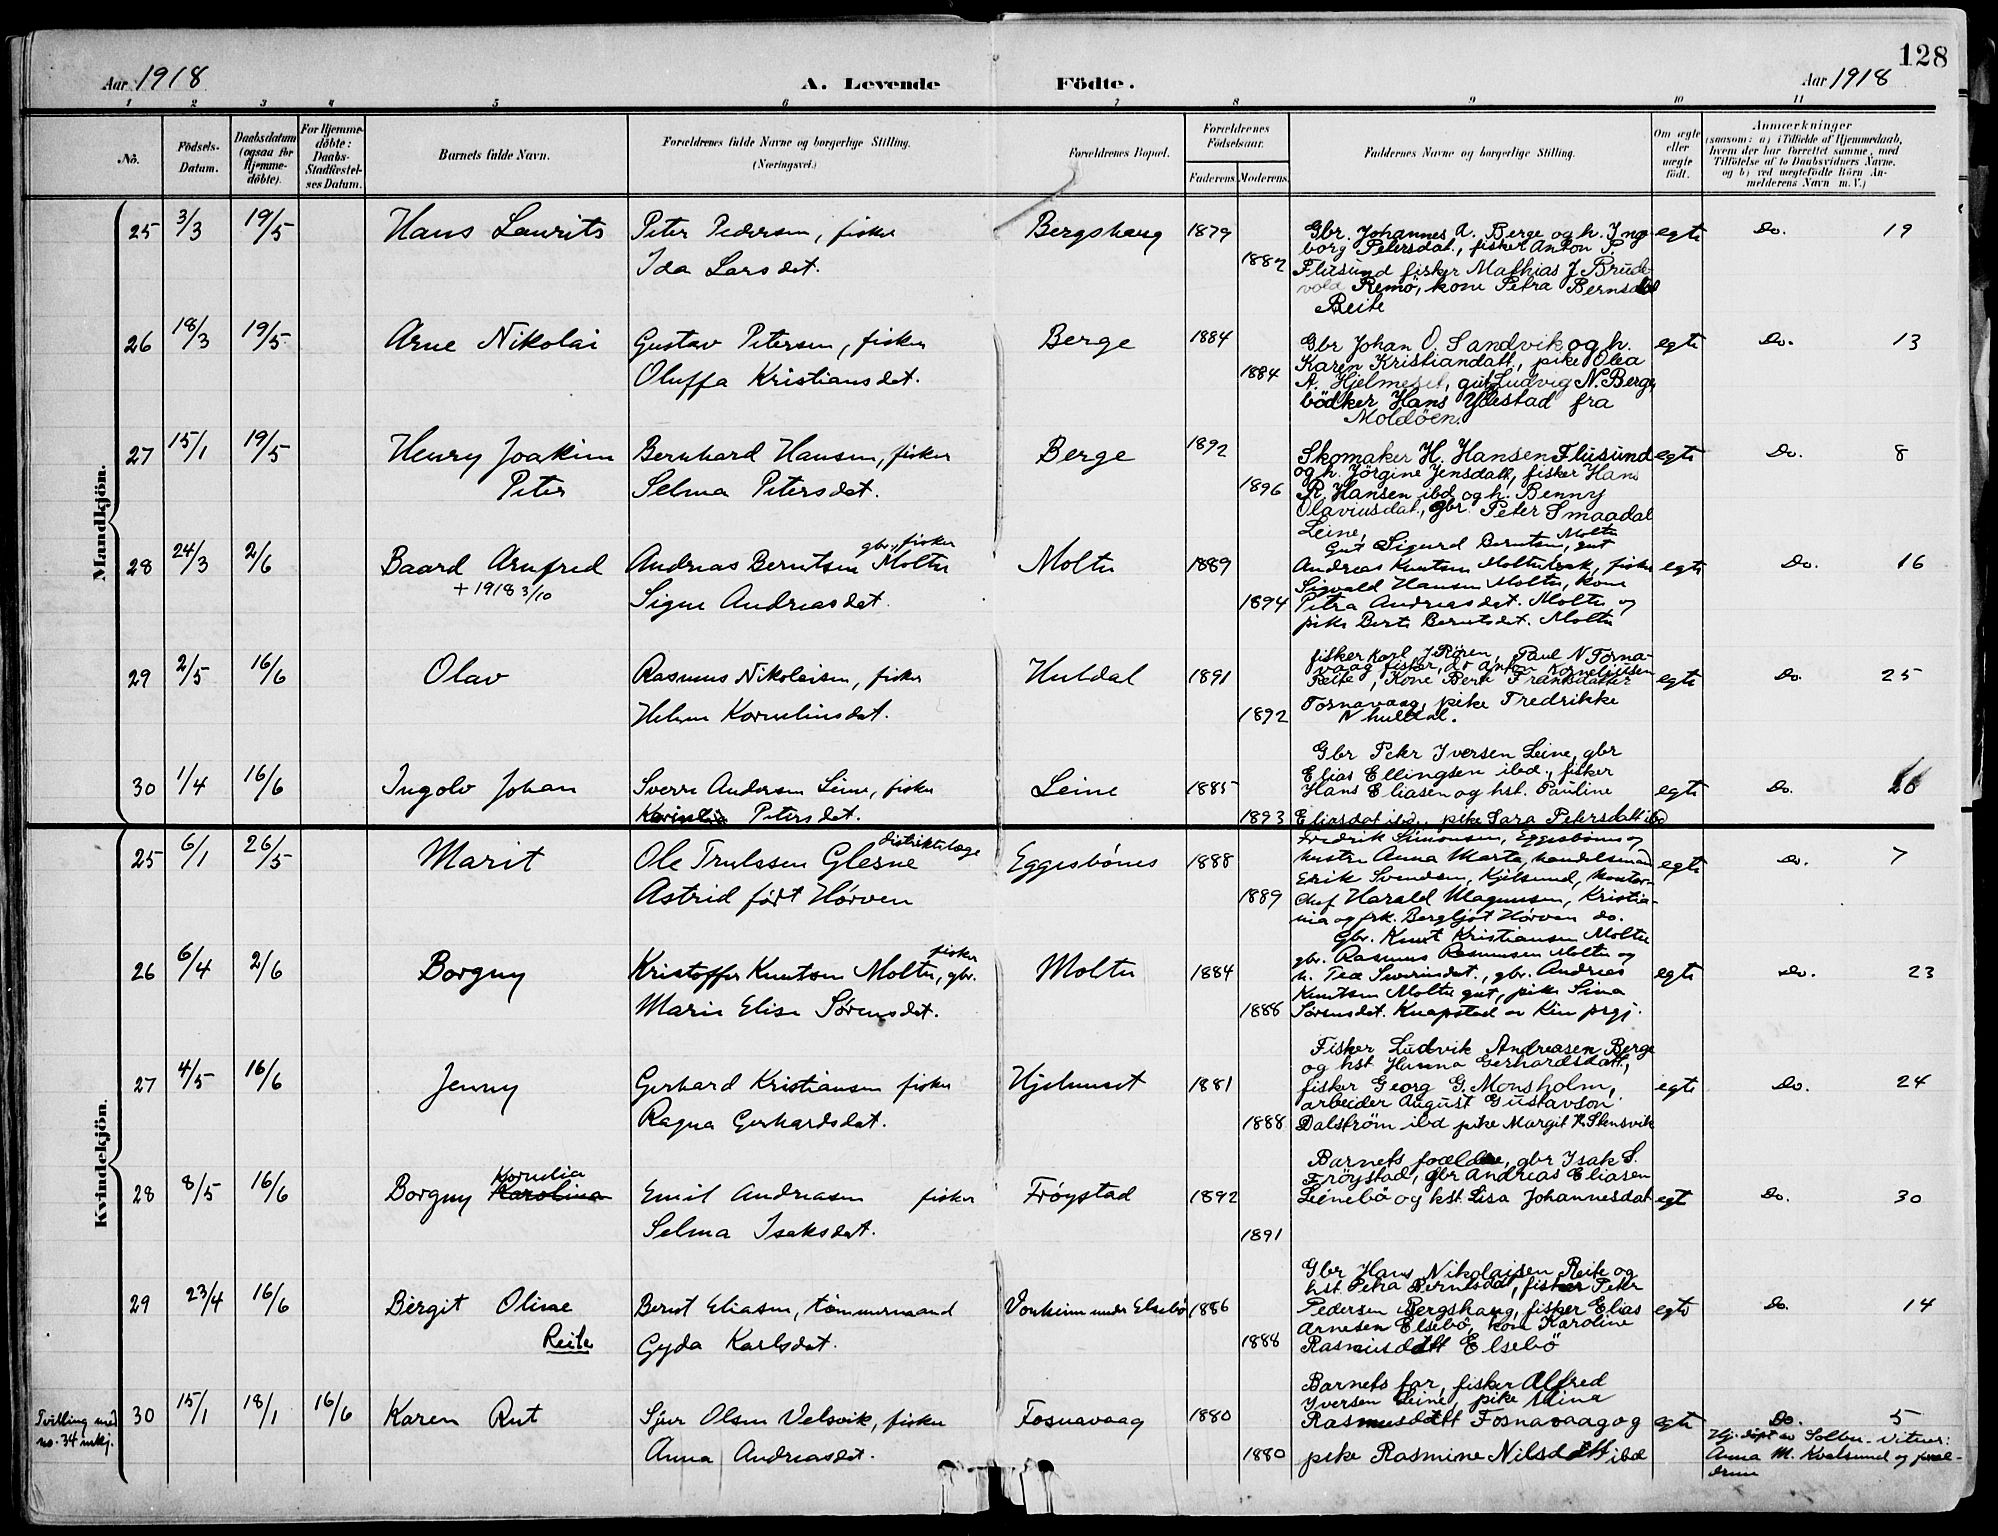 128
Aar 1918
A. Levende Födte.
Aar 1918
1 2 3 4 5 6 7 8 9 10 11
No.
Födsels-Datum.
Daabsdatum (ogsaa for Hjemme-döbte).
For Hjemme-döbte: Daabs-Stadfæstel-ses Datum.
Barnets fulde Navn.
Forældrenes fulde Navne og borgerlige Stilling. (Næringsvei.)
Forældrenes Bopæl.
Forældrenes Födselsaar.
Faderens Moderens
Faddernes Navne og borgerlige Stilling.
Om ægte eller uægte födt.
Anmærkninger
(saasom: a) i Tilfælde af Hjemmedaab,
hvem der har forrettet samme, med
Tilföielse af to Daabsvidners Navne.
og b) ved uægtefödte Börn An-
melderens Navn m. V.)
Mandkjön.
25 3/3 19/5 Hans Laurits
Peter Pedersen, fisker
Ida Larsdat.
Bergshaug 1879
1882
Gbr. Johannes A. Berge og h. Ing-
borg Petersdat., fisker Anton P.
Flusund fisker Mathias J. Brude-
vold Remö, kone Petra Bernsdat
Reite
egte Do. 19
26 18/3 19/5 Arne Nikolai
Gustav Petersen, fisker
Oluffa Kristiansdat.
Berge 1884
1884
Gbr Johan O. Sandvik og h.
Karen Kristiandatt, pike Olea
A. Hjelmeset, gut Ludvig N. Berge,
bödker Hans Ydestad fra
Moldöen.
egte Do. 13
27 15/1 19/5 Henry Joakim
Peter
Bernhard Hansen, fisker
Selma Petersdat.
Berge 1892
1896
Skomaker H. Hansen Flusund
og h. Jörgine Jensdatt, fisker Hans
R. Hansen ibd og h. Benny
Olaviusdat., gbr. Peter Smaadal
Leine,
egte Do. 8
28 24/3 2/6 Baard Arnfred
+ 1918 3/10
gbr., fisker
Andreas Berntsen Moltu
Signe Andreasdat.
Moltu 1889
1894
Gut Sigurd Berntsen, Moltu gut
Andreas Knutsen Moltubak, fisker
Sigvald Hansen Moltu, kone
Petra Andreasdat. Moltu og
pike Berte Berntsdat. Moltu
egte Do. 16
29 2/5 16/6 Olav
Rasmus Nikolaisen, fisker
Helene Korneliusdat.
Huldal 1891
1892
fisker Karl J Rören, Paul N Forna-
vaag fisker, do anton Korneliusen
Reite, Kone Berte Fransdatter
Fornavaag, pike Fredrikke
N huldal.
egte Do. 25
30 1/4 16/6 Ingolv Johan
Sverre Andersen Leine, fisker
Kornelia Petersdat.
Leine 1885
1893
Gbr Peter Iversen Leine, gbr
Elias Ellingsen ibd., fisker
Hans Eliasen og hst. Pauline
Eliasdat ibd., pike Sara Petersdatt ibd
egte Do.
Kvindekjön.
25 6/1 26/5 Marit
distriktslæge
Ole Trulssen Glesne
Astrid født Hørven
Eggesbönes 1888
1889
Fredrik Simonsen, Eggesbönes og
hustru Anna Marta, handelsmand
Erik Svendsen, Kjelsund, kontor-
chef Harald Magnusen, Kristia-
nia og frk. Bergljot Hørven do.
egte Do. 7
26 6/4 2/6 Borgny
fisker
Kristoffer Knutsen Moltu, gbr.
Marie Elise Sørensdat.
Moltu 1884
1888
Gbr. Knut Kristiansen Moltu
gbr. Rasmus Rasmussen Moltu og
h. Tea Severindat., gbr. Andreas
Knutsen Moltu gut, pike Sina
Sørensdat. Knapstad av Kinn prgj.
egte Do. 23
27 4/5 16/6 Jenny
Gerhard Kristiansen fisker
Ragna Gerhardsdat.
Hjelmeset 1881
1888
Fisker Ludvik Andreasen Berge
og hst Hanna Gerhardsdatt,
fisker Georg G. Monsholm,
arbeider August Gustavson
Dalström ibd pike Margit K. Stensvik
egte Do. 24
28 8/5 16/6 Kornelia
Borgny Karolina
Emil Andreasen fisker
Selma Isaksdat.
Frøystad 1892
1891
Barnets foældre, gbr Isak S.
Fröystad, gbr Andreas Eliasen
Leinebö og hst. Lisa Johannesdat
egt Do. 30
29 23/4 16/6 Bergit Oline
Reite
Bernt Eliasen, tømmermand
Gyda Karlsdat.
Vonheim under Elsebö 1886
1888
Gbr Hans Nikolaisen Reite og
hst. Petra Berntsdat, fisker Peter
Pedersen Bergshaug, fisker Elias
Arnesen Elsebö, kone Karoline
Rasmusdatt Elsebö
egte Do. 14
Tvilling med
no. 34 mkj.
30 15/1 18/1 16/6 Karen Rut
Sjur Olsen Velsvik, fisker
Anna Andreasdat.
Fosnavaag 1880
1880
Barnets far, fisker Alfred
Iversen Leine, pike Mina
Rasmusdatt Fosnavaag og
pike Rasmine Nilsdatt ibd
egte Do. 5
Hj. döpt av Solbu. Vitner:
Anna M. Kvalsund og foræl-
drene